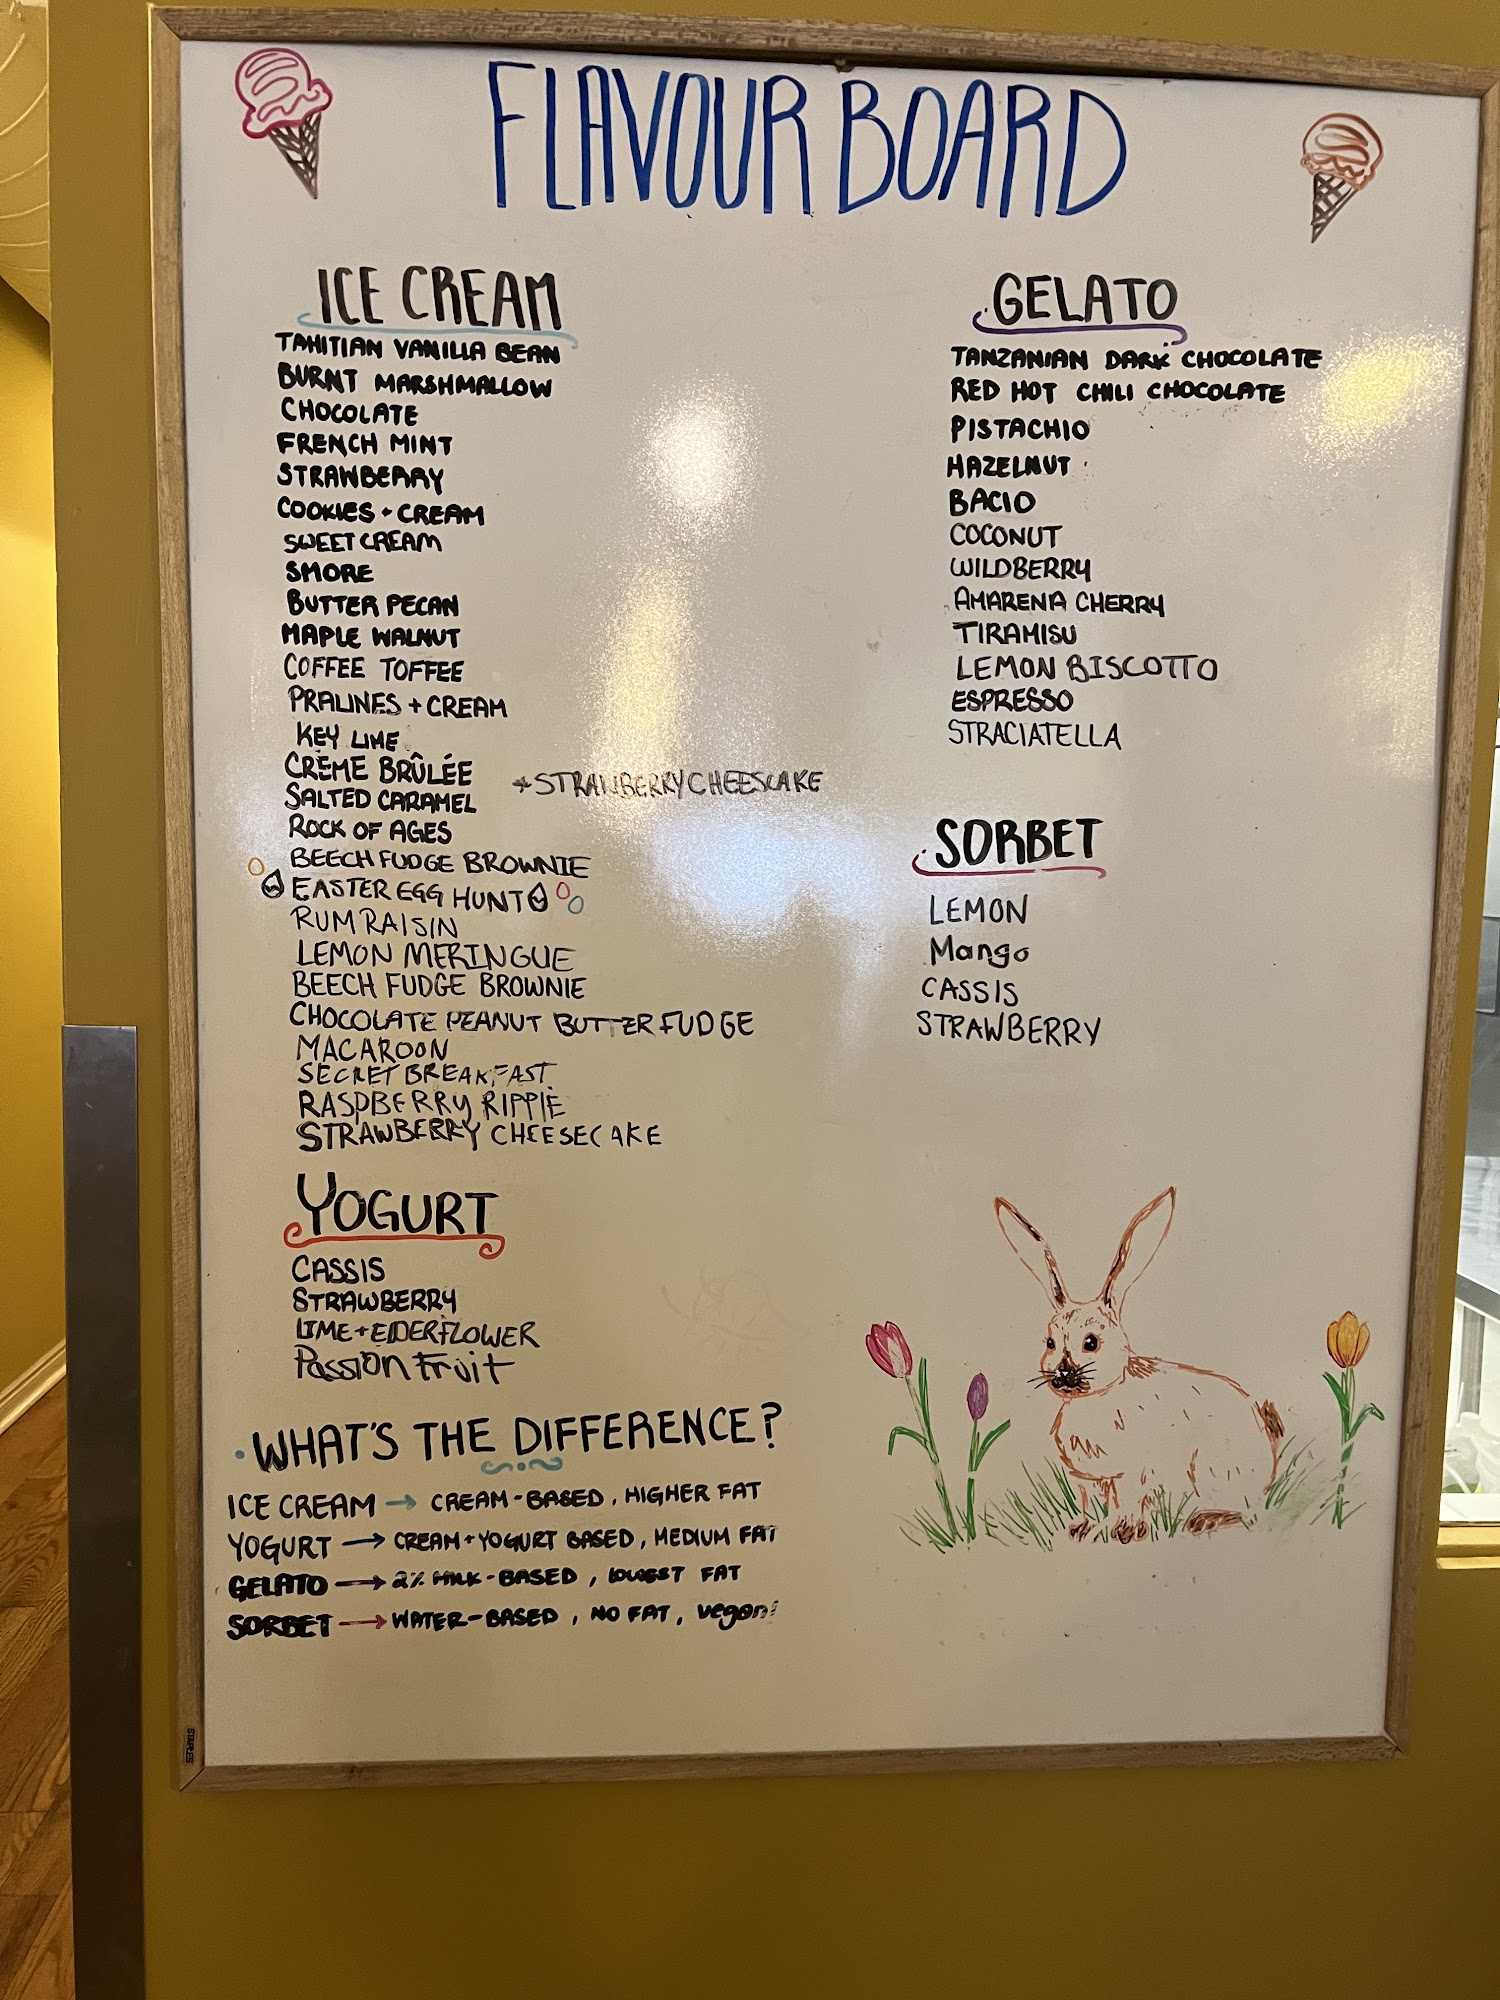 FLAVOUR BOARD
ICE CREAM
TAHITIAN VANILLA BEAN
BURNT MARSHMALLOW
CHOCOLATE
FRENCH MINT
STRAWBERRY
COOKIES + CREAM
SWEET CREAM
SMORE
BUTTER PECAN
MAPLE WALNUT
COFFEE TOFFEE
PRALINES + CREAM
KEY LIME
CRÈME BRÛLÉE
SALTED CARAMEL
ROCK OF AGES
BEECH FUDGE BROWNIE
EASTER EGG HUNT
RUM RAISIN
LEMON MERINGUE
BEECH FUDGE BROWNIE
CHOCOLATE PEANUT BUTTER FUDGE
MACAROON
SECRET BREAKFAST
RASPBERRY RIPPLE
STRAWBERRY CHEESECAKE
* STRAWBERRY CHEESCAKE
YOGURT
CASSIS
STRAWBERRY
LIME + ELDERFLOWER
Passion Fruit
GELATO
TANZANIAN DARK CHOCOLATE
RED HOT CHILI CHOCOLATE
PISTACHIO
HAZELNUT
BACIO
COCONUT
WILDBERRY
AMARENA CHERRY
TIRAMISU
LEMON BISCOTTO
ESPRESSO
STRACIATELLA
SORBET
LEMON
Mango
CASSIS
STRAWBERRY
WHAT'S THE DIFFERENCE?
ICE CREAM → CREAM-BASED, HIGHER FAT
YOGURT → CREAM + YOGURT BASED, MEDIUM FAT
GELATO → 2% MILK-BASED, LOWEST FAT
SORBET → WATER-BASED, NO FAT, vegan!
STAPLES